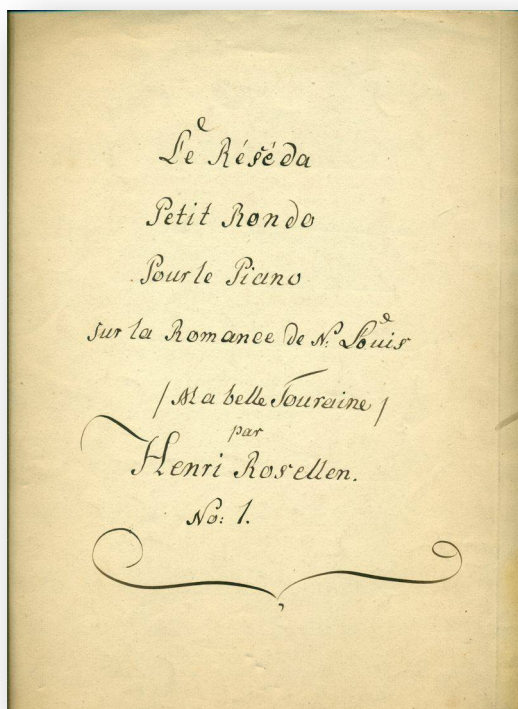 Le Réséda
Petit Rondo
Pour le Piano
sur la Romance de N: Louis
/ Ma belle Touraine /
par
Henri Rosellen.
No: 1.